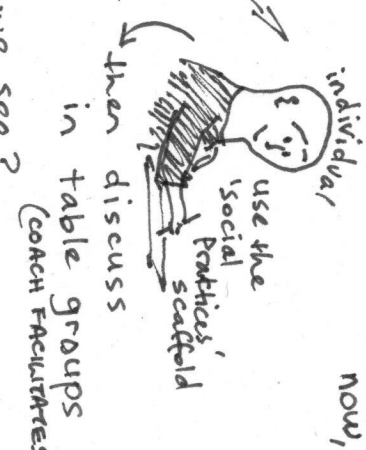 now,
individual
use the
'social
practices'
scaffold
then discuss
in table groups
(COACH FACILITATES
see?